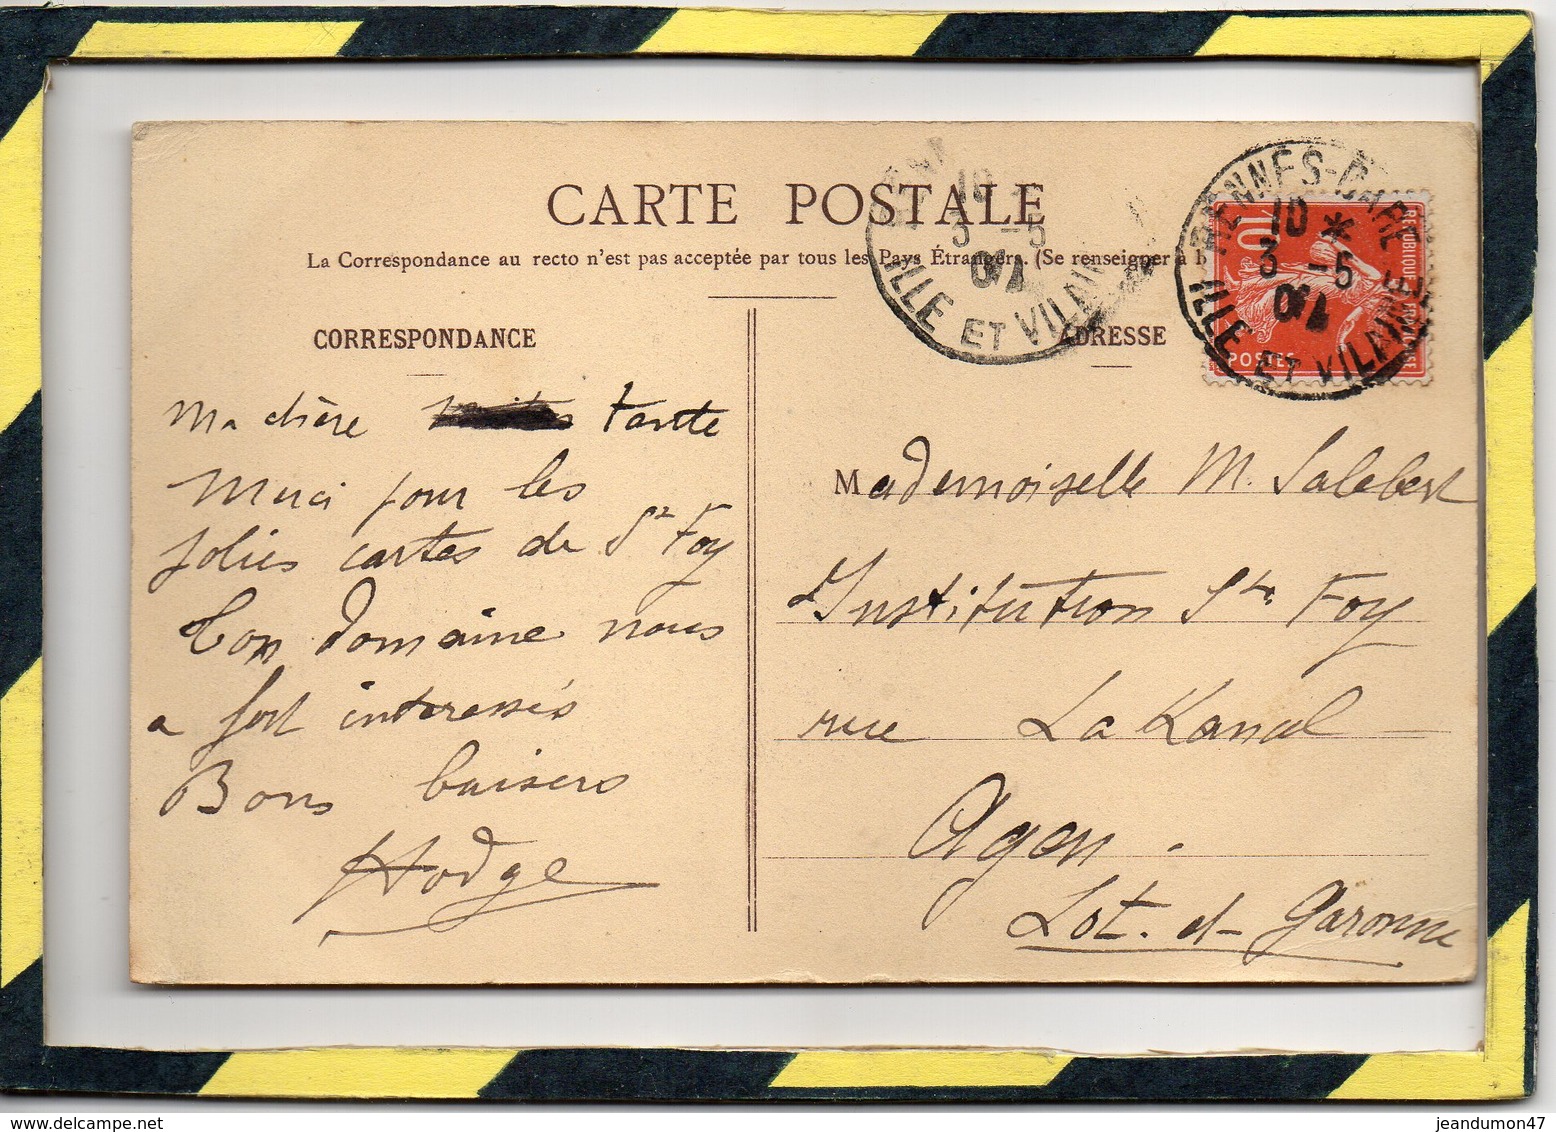 CARTE POSTALE
La Correspondance au recto n'est pas acceptée par tous les Pays Étrangers. (Se renseigner à l
CORRESPONDANCE
Ma chère Tante
Merci pour les
jolies cartes de Ste Foy
Ton domaine nous
a fort intéressés
Bons baisers
Hodge
ADRESSE
Mademoiselle M. Salabert
Institution Ste Foy
rue La Kanal
Agen.
Lot. et Garonne
RENNES-GARE
10 *
3 -5
07
ILLE ET VILAINE
10
REPUBLIQUE FRANÇAISE
POSTES
RENN
10
3 -5
07
ILLE ET VILAIN
jeandumon47